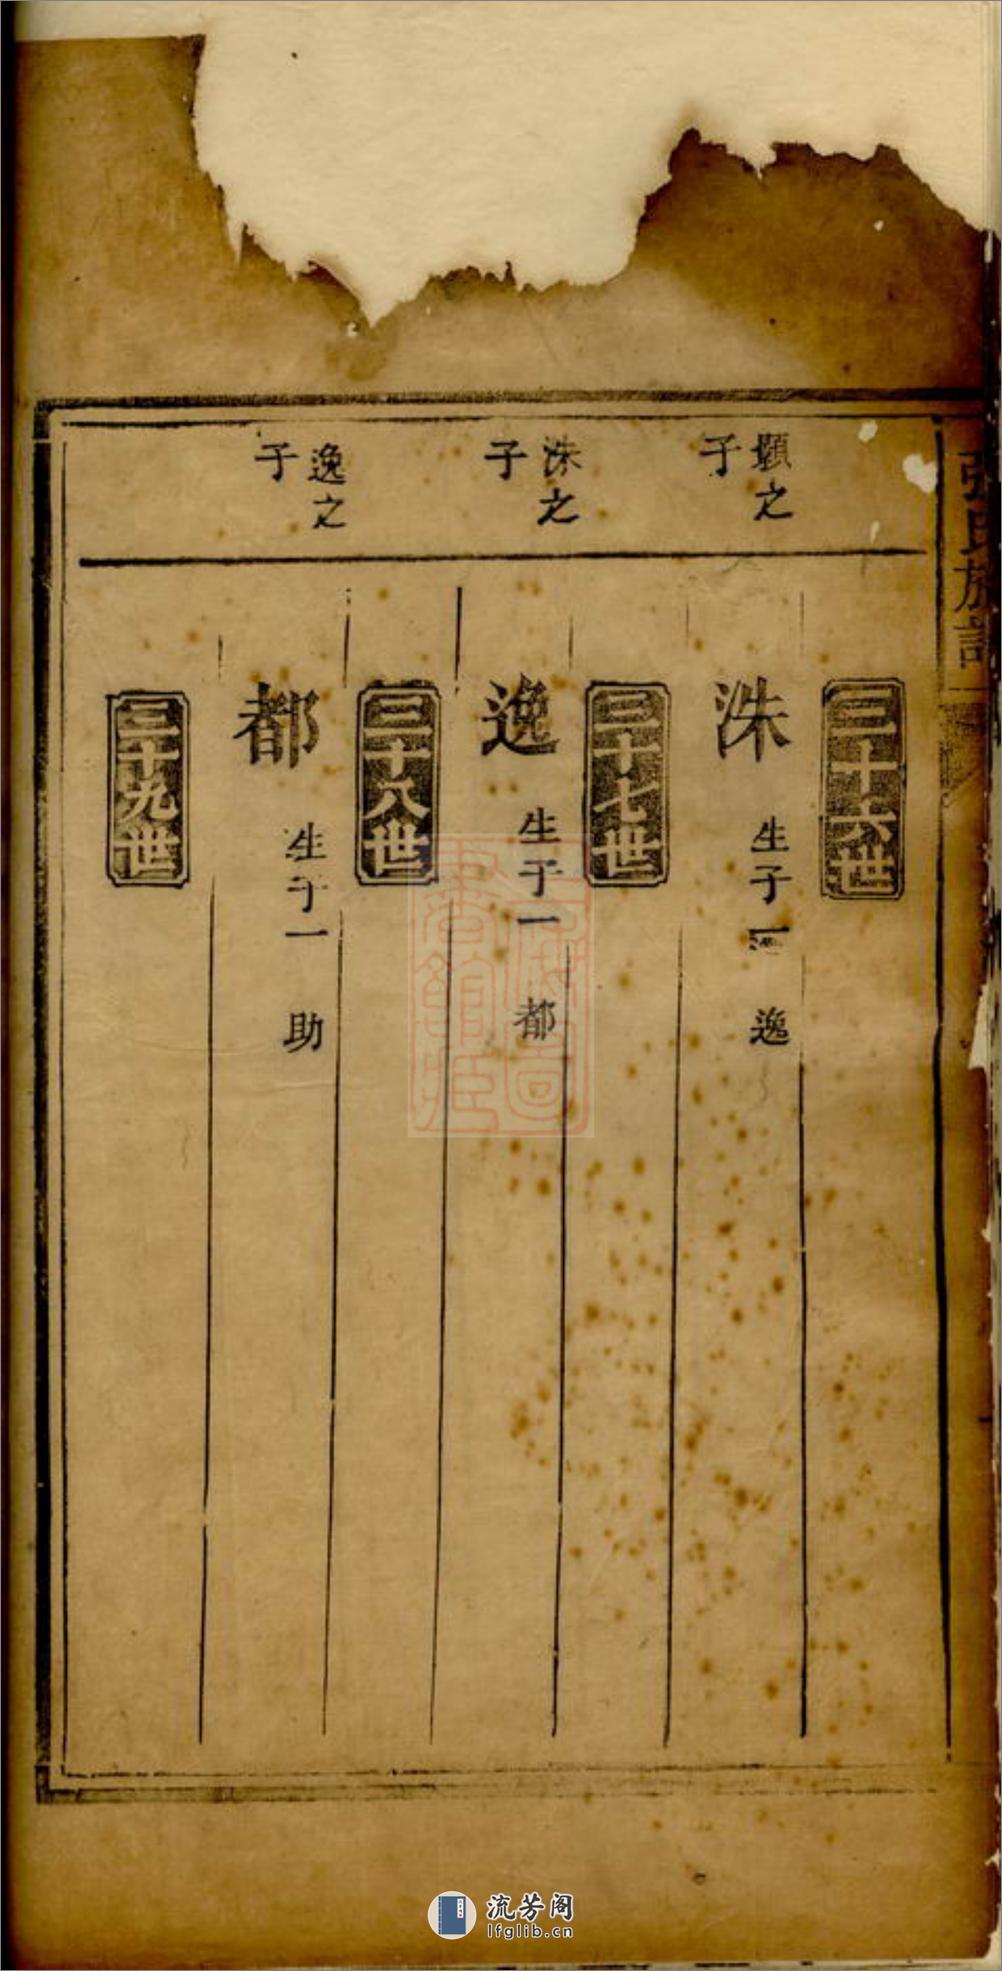 張氏族譜
三十六世
顯之
子
洙 生子一 逸
三十七世
洙之
子
逸 生子一 都
三十八世
逸之
子
都 生子一 助
三十九世
流芳阁
lfglib.cn